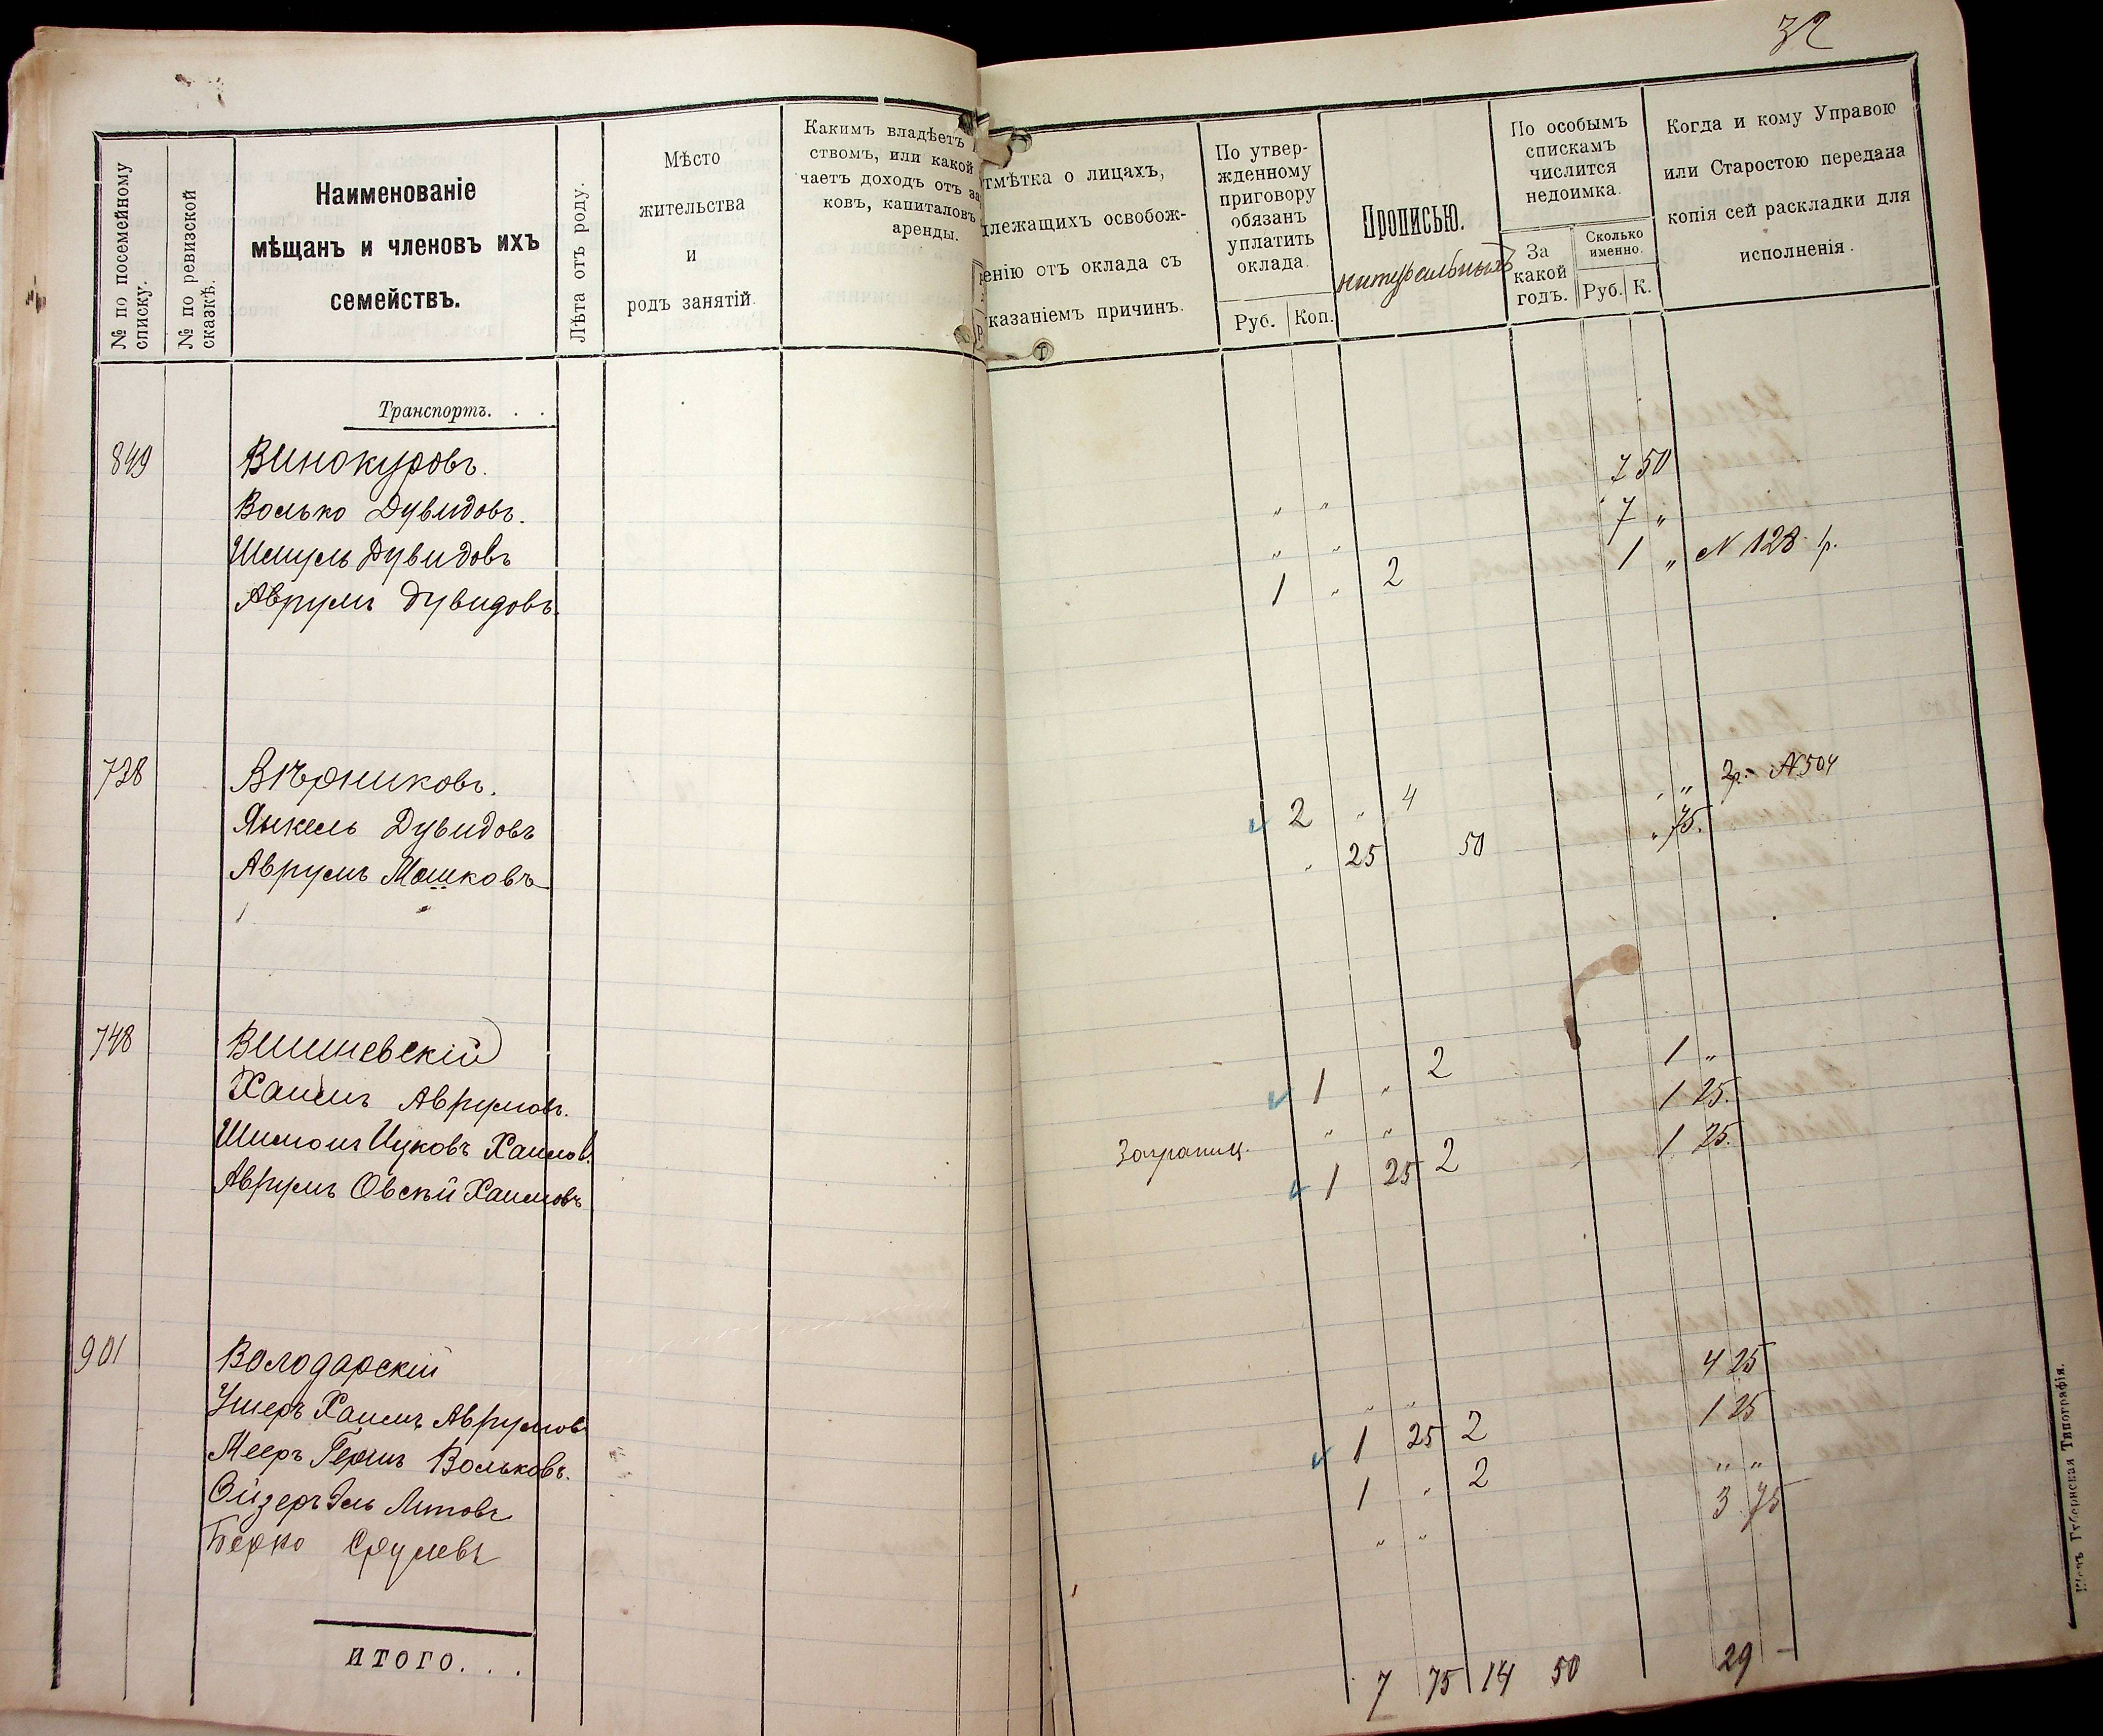 32
№ по посемейному списку.
№ по ревизской сказкѣ.
Наименованіе
мѣщанъ и членовъ ихъ
семействъ.
Лѣта отъ роду.
Мѣсто
жительства
и
родъ занятій.
Какимъ владѣетъ
ствомъ, или какой
чаетъ доходъ отъ за
ковъ, капиталовъ
аренды.
тмѣтка о лицахъ,
длежащихъ освобож-
енію отъ оклада съ
казаніемъ причинъ.
По утвер-
жденному
приговору
обязанъ
уплатить
оклада.
Руб. Коп.
Прописью.
натуральныхъ
По особымъ
спискамъ
числится
недоимка.
За
какой
годъ.
Сколько
именно.
Руб. К.
Когда и кому Управою
или Старостою передана
копія сей раскладки для
исполненія.
Транспортъ. . .
849 Винокуровъ.
Волько Дувидовъ. " " 7 50
Шмуль Дувидовъ " " 7 "
Аврумъ Дувидовъ. 1 " 2 1 " N 128 1р.
728 Вѣрниковъ.
Янкель Дувидовъ 2 " 4 " " 2р. N 504
Аврумъ Мошковъ " 25 50 " 75.
748 Вишневскій
Хаимъ Аврумов. 1 " 2 1 "
Шимонъ Ицковъ Хаимов. Заграниц. " " 1 25.
Аврумъ Овсѣй Хаимовъ 1 25 2 1 25.
901 Володарскій
Ушеръ Хаимъ Аврумов " " 4 25
Мееръ Гершъ Вольковъ. 1 25 2 1 25
Ойзеръ Эль Литовъ 1 " 2 " "
Берко Срулевъ " " 3 75
ИТОГО. . . 7 75 14 50 29 -
Губернская Типографія.